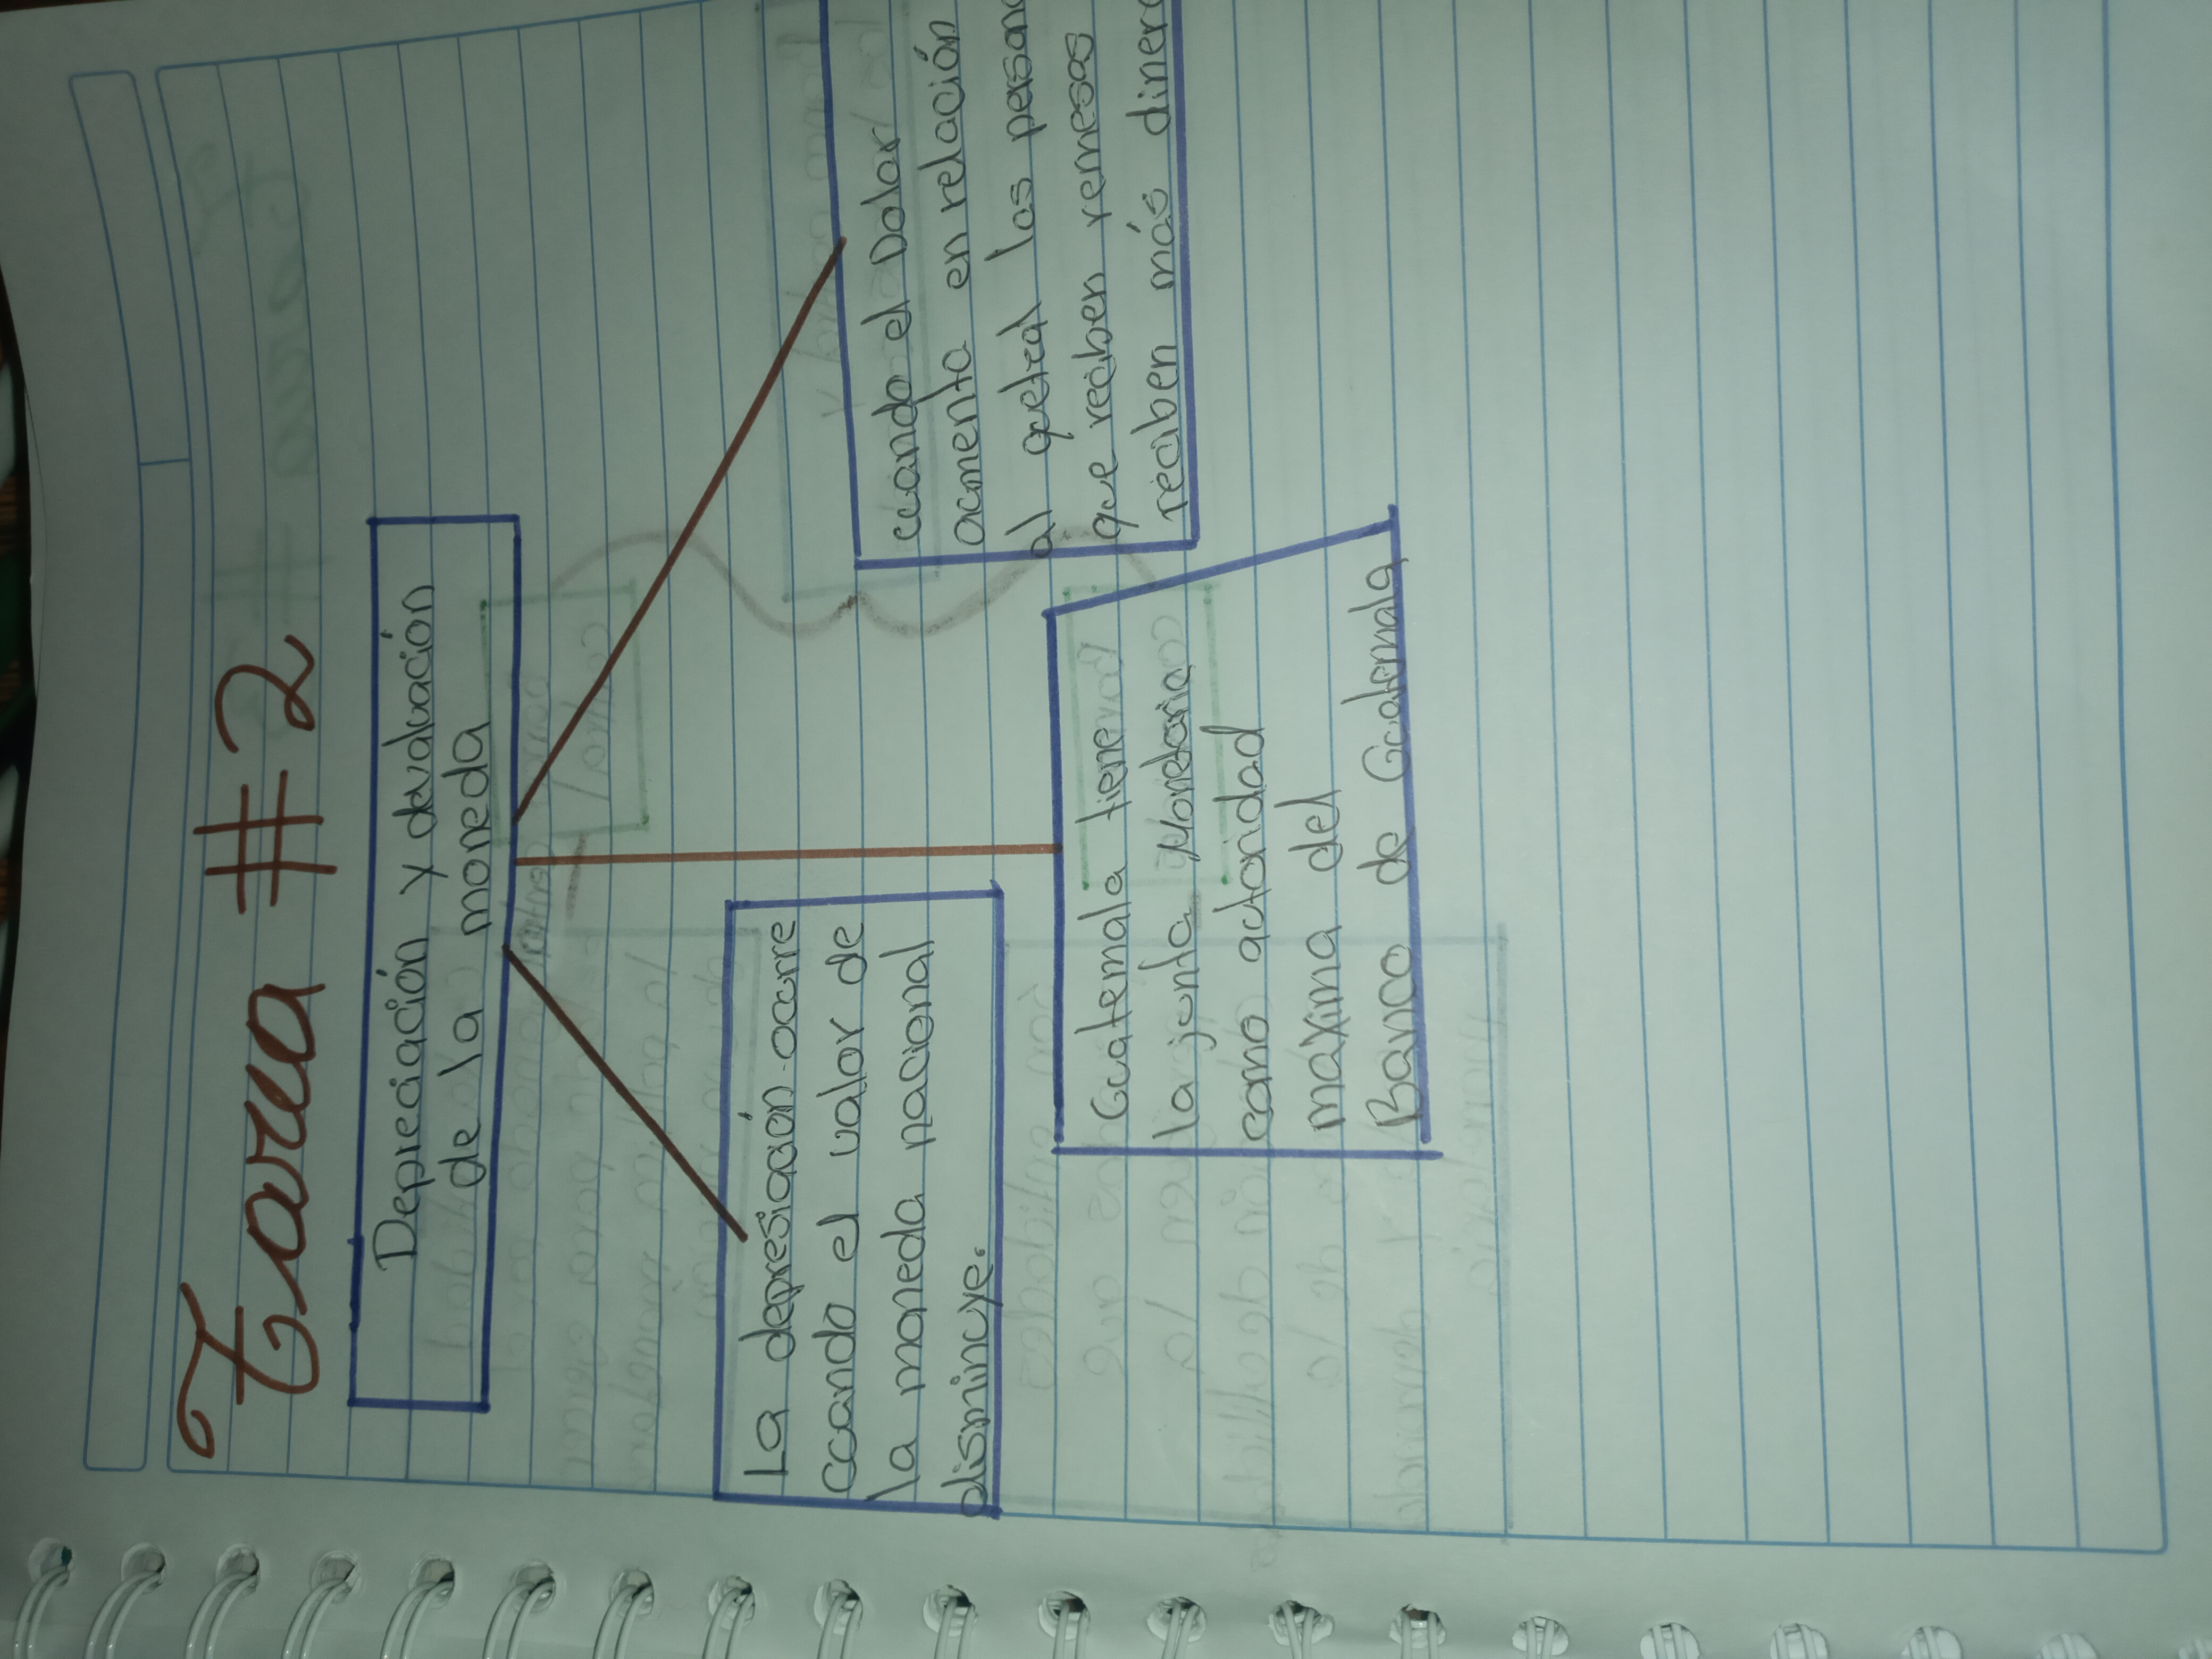 Tarea #2
Depreciación y devaluación
de la moneda
La depresiación ocurre
cuando el valor de
la moneda nacional
disminuye.
Guatemala tiene
la junta Monetaria
como autoridad
maxima del
Banco de Guatemala
cuando el Dolar
aumenta en relación
al quetzal las person
que reciben remesas
reciben más diner